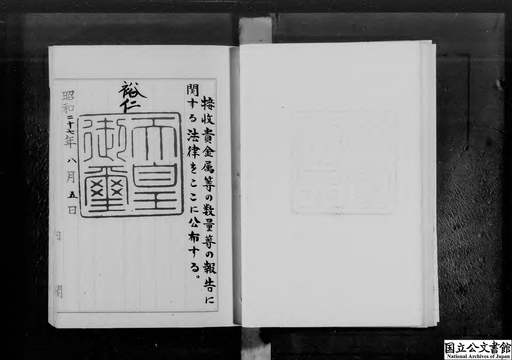 接收貴金属等の数量等の報告に
関する法律をここに公布する。
裕仁
天皇
御璽
昭和二十七年八月五日
内閣
国立公文書館
National Archives of Japan